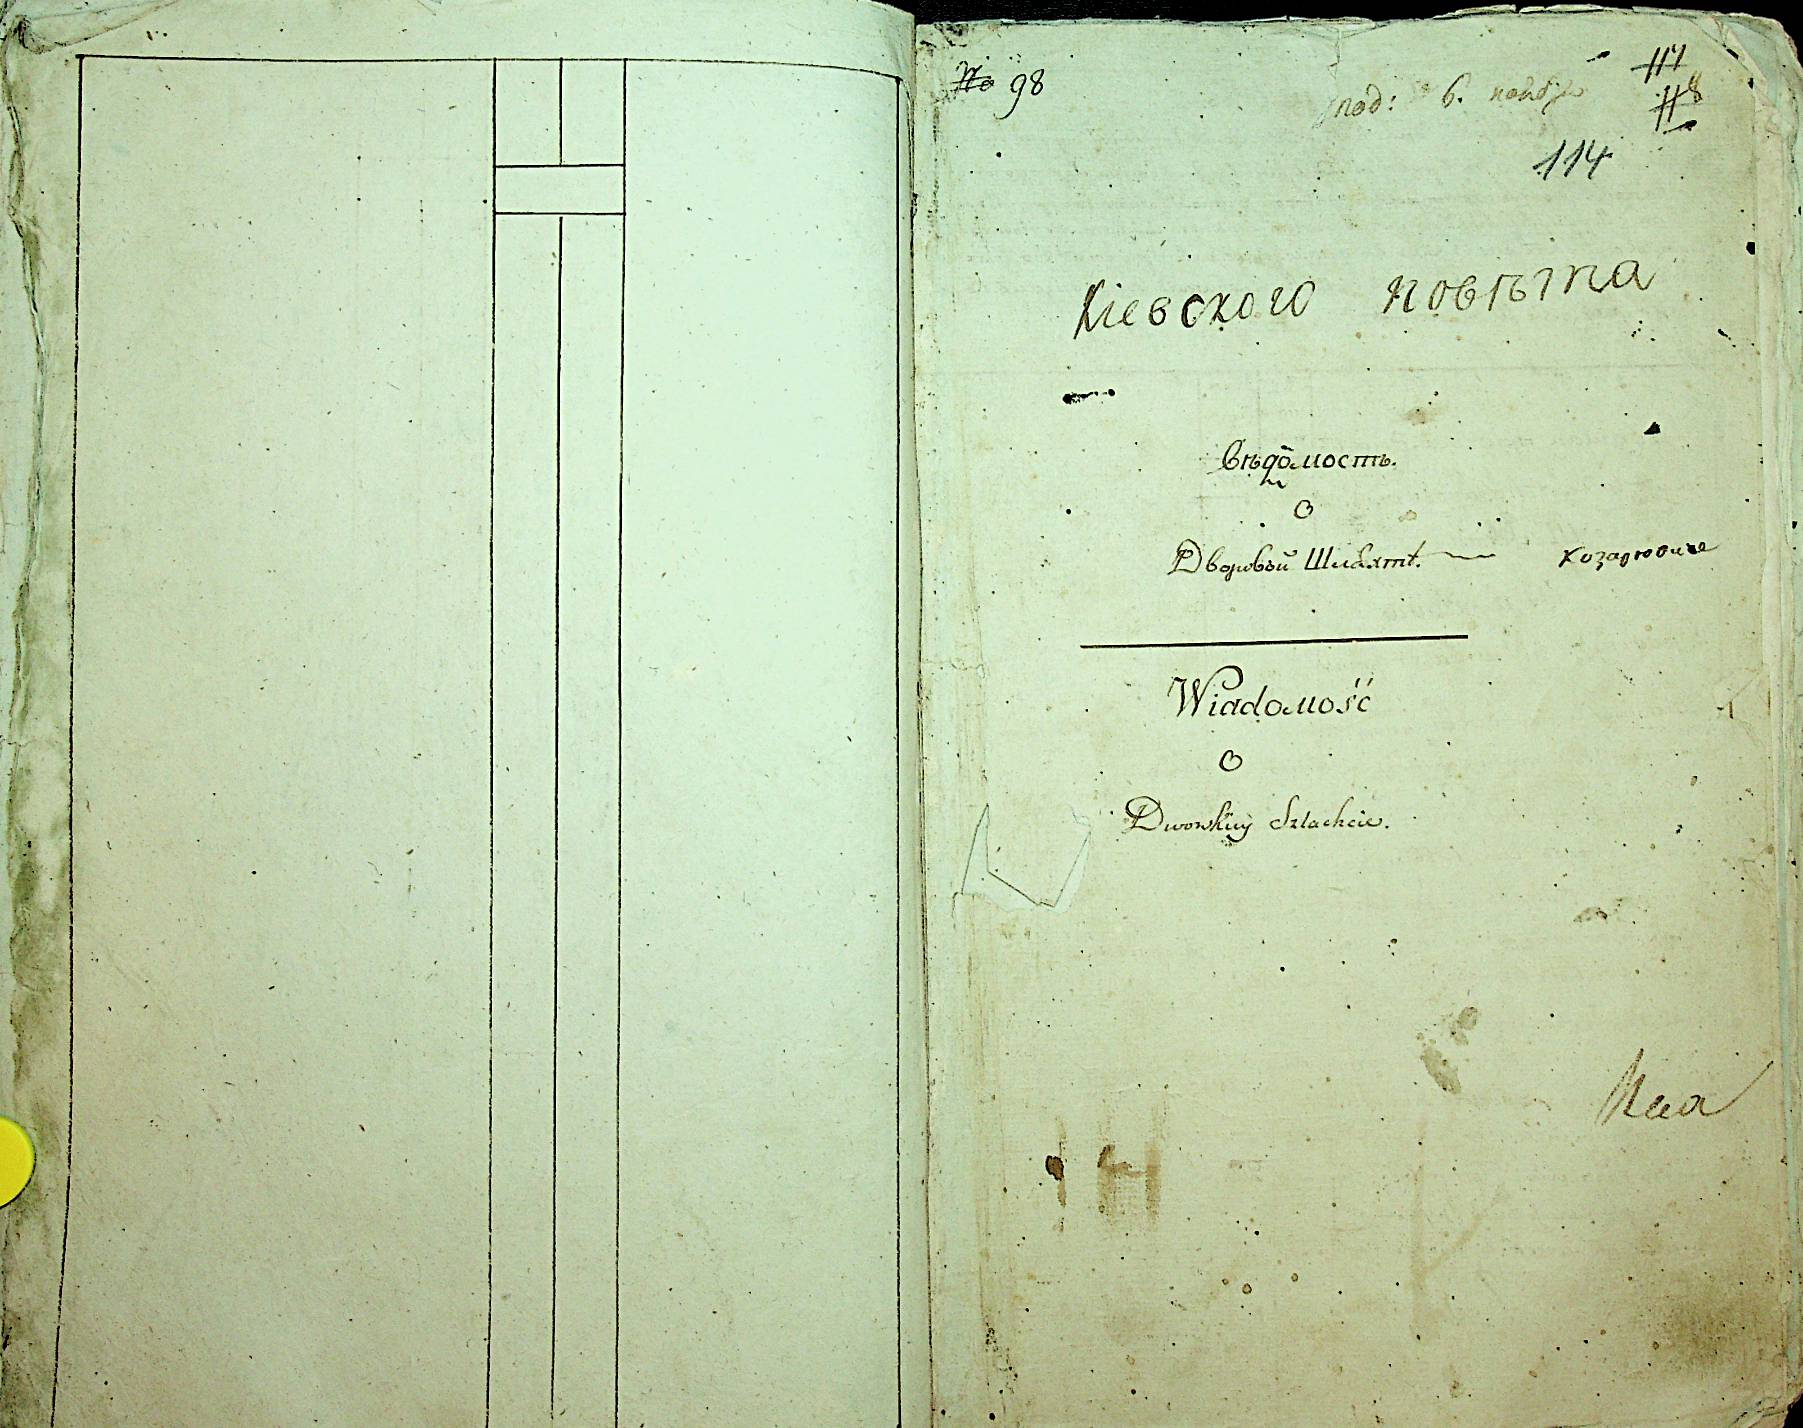 № 98
117
под: 6. ноября
118
114
Кіевского повѣта
Вѣдомость.
О
Дворовой Шляхтѣ. Козаровиче
Wiadomość
O
Dworskiey Szlachcie.